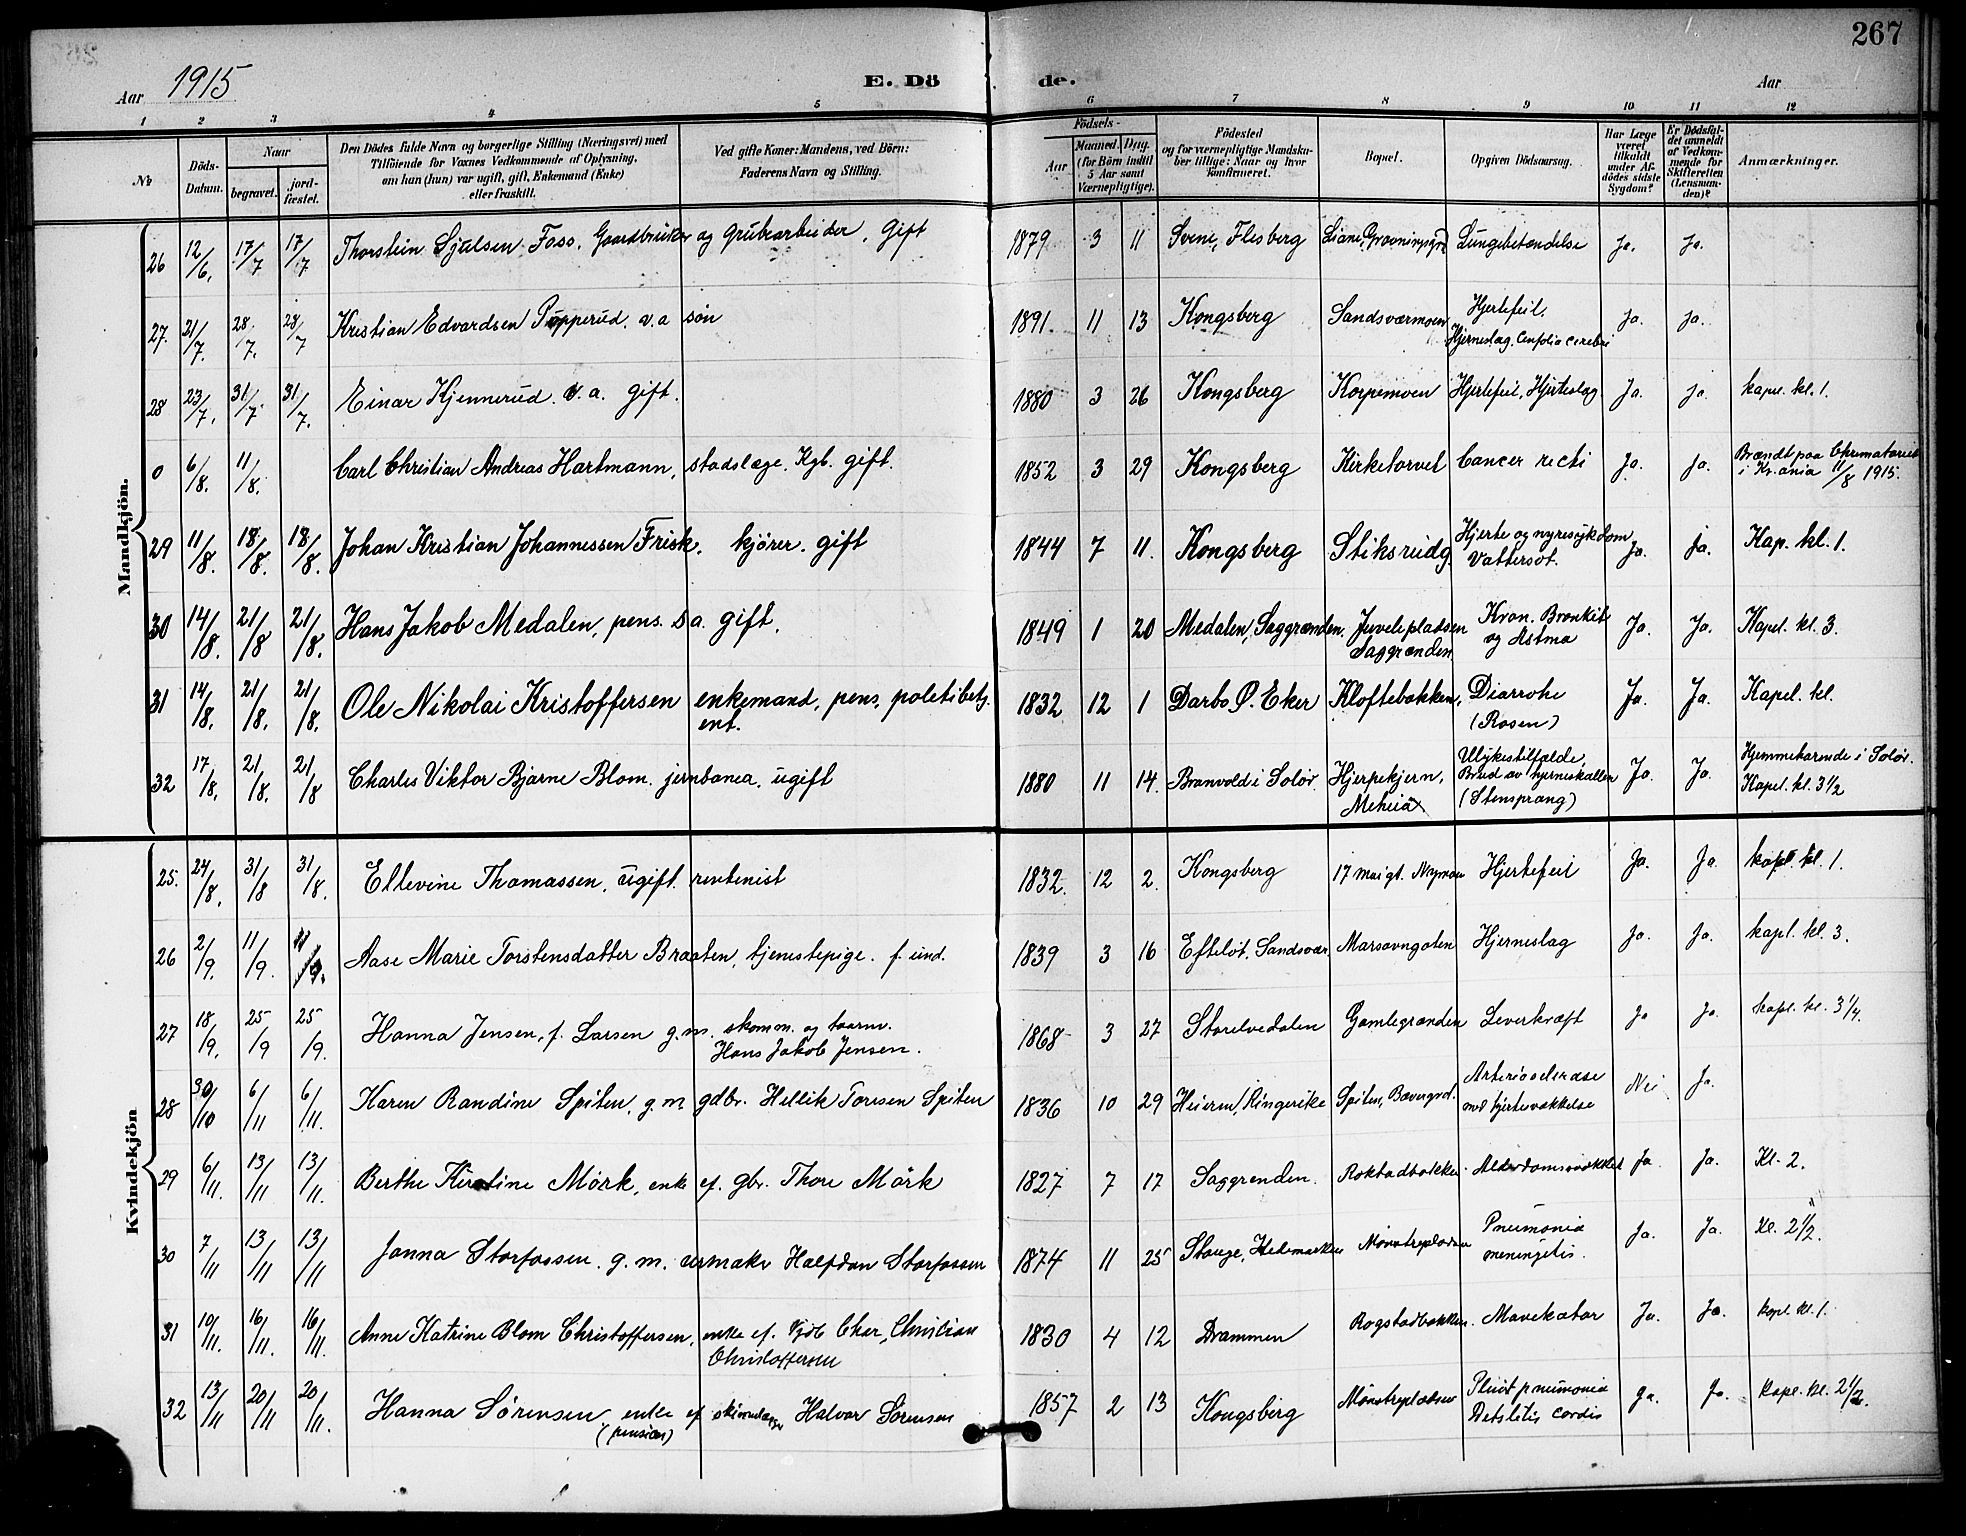 267
Aar 1915
E. Dö de.
Aar
1 2 3 4 5 6 7 8 9 10 11 12
No
Döds-Datum.
Naar
begravet.
jord-fæstet.
Den Dödes fulde Navn og borgerlige Stilling (Næringsvei) med
Tilföiende for Voxnes Vedkommende af Oplysning,
om han (hun) var ugift, gift, Enkemand (Enke)
eller fraskilt.
Ved gifte Koner: Mandens, ved Börn:
Faderens Navn og Stilling.
Födsels-
Aar
Maaned. Dag.
(for Börn indtil
5 Aar samt
Værnepligtige).
Födested
og for værnepligtige Mandskaber tillige: Naar og hvor
konfirmeret.
Bopæl.
Opgiven Dödsaarsag.
Har Læge
været
tilkaldt
under Afdödes sidste
Sygdom?
Er Dödsfaldet anmeldt
af Vedkommende for
Skifteretten
(Lensmanden)?
Anmærkninger.
Mandkjön.
26 12/6. 17/7 17/7 Thorstein Sjulsen Foss, Gaardbruker og grubearbeider, Gift 1879 3 11 Svene, Flesberg Liane, Lungebetændelse Ja. Ja.
27. 21/7. 28/7. 28/7 Kristian Edvardsen Pupperud. v.a søn 1891. 11 13 Kongsberg Sandsværmoen Hjertefeil. Hjerneslag. Ja. Ja.
28 23/7. 31/7. 31/7. Einar Kjennerud. v.a. gift. 1880 3 26 Kongsberg Korpemoen Hjertefeil, Hjerteslag Ja. Ja. kapel. kl. 1.
0 6/8. 11/8. Carl Christian Andreas Hartmann, stadslæge. Kgb. gift. 1852 3 29 Kongsberg Kirketorvet Cancer recti Ja. Ja. Brændt paa i Kr.ania 11/8 1915.
29 11/8. 18/8. 18/8. Johan Kristian Johannessen Frisk. kjörer. gift 1844 7 11. Kongsberg Stiksrudg. Hjerte og nyresykdom Vattersot. Ja. Ja. Kap. kl. 1.
30 14/8. 21/8 21/8. Hans Jakob Medalen, pens. s.a. gift. 1849 1 20 Medalen, Saggrenden. Juveleplatsen Saggrenden Kron. Bronkit og Astma Ja. Ja. Kapel. kl. 3.
31 14/8. 21/8. 21/8. Ole Nikolai Kristoffersen enkemand, pens, politibetj. ent. 1832 12 1 Darbo Ø. Eker Kloftebakken, Diarrohe (Rosen) Ja. Ja. Kapel. kl.
32 17/8. 21/8. 21/8 Charles Viktor Bjarne Blom. jernbanea. ugift 1880 11 14. Branvold i Solör. Hjerpekjern, Meheia Ulykestilfælde, Brud av hjerneskallen (Stensprang) Ja. Ja. Hjemmehørende i Solör. Kapel. kl. 3 1/2
Kvindekjön
25. 24/8. 31/8 31/8. Ellevine Thomassen, ugift. rentenist 1832. 12 2. Kongsberg 17 maigt. Nymoen Hjertefeil Ja. Ja. kapl. kl. 1.
26 2/9. 11/9. 11/9. Aase Marie Torstensdatter Braaten, tjenestepige. f. und. 1839 3 16 Efteløt. Sandsvær Hjerneslag Ja. Ja. kapl. kl. 3.
27 18/9. 25/9 25/9. Hanna Jensen, f. Larsen g.m. skomm. og taarnv. Hans Jakob Jensen. 1868 3 27 Storelvedalen Gamlegrænden Leverkræft Ja Ja. kapl. kl. 3 1/4.
28 30/10 6/11 6/11. Karen Randine Spiten, g.m. gdbr. Hellik Toresen Spiten 1836 10 29 Heieren, Ringerike Spiten, Bævergrd. Arteriosclerose med hjertesvækkelse Nei Ja.
29 6/11. 13/11 13/11. Berthe Kirstine Mörk, enke ef. gbr. Thore Mörk 1827 7 17 Saggrenden. Rokstadbakken Alderdomssvækkel Ja. Ja. Kl. 2.
30 7/11 13/11 13/11 Janna Storfossen. g.m. urmaker Halfdan Storfossen 1874 11 25 Stange, Hedemarken Mønstrepladsen Pneumonia meningitis. Ja. Ja. kl. 2 1/2.
31 10/11. 16/11. 16/11. Anne Katrine Blom Christoffersen, enke ef. Christian Christoffersen 1830 4 12 Drammen Rogstadbakken. Mavekatar Ja. Ja. kapl. kl. 1.
32 13/11 20/11 20/11. Hanna Sörensen (pension) enke ef Halvor Sörensen 1857 2 13 Kongsberg Mønstrepladsen pneumonia cordis Ja. Ja. kapl. kl. 2 1/2.